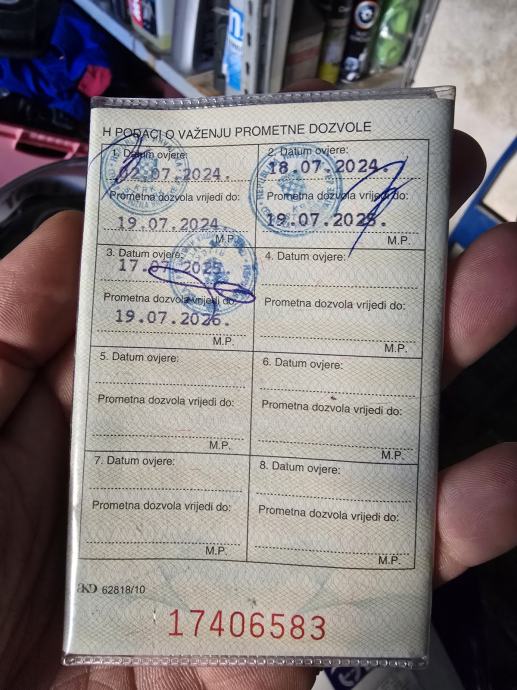 H PODACI O VAŽENJU PROMETNE DOZVOLE
1. Datum ovjere:
02.07.2024.
Prometna dozvola vrijedi do:
19.07.2024.
M.P.
2. Datum ovjere:
18.07.2024.
Prometna dozvola vrijedi do:
19.07.2025.
M.P.
3. Datum ovjere:
17.07.2025.
Prometna dozvola vrijedi do:
19.07.2026.
M.P.
4. Datum ovjere:
Prometna dozvola vrijedi do:
M.P.
5. Datum ovjere:
Prometna dozvola vrijedi do:
M.P.
6. Datum ovjere:
Prometna dozvola vrijedi do:
M.P.
7. Datum ovjere:
Prometna dozvola vrijedi do:
M.P.
8. Datum ovjere:
Prometna dozvola vrijedi do:
M.P.
AKD 62818/10
17406583